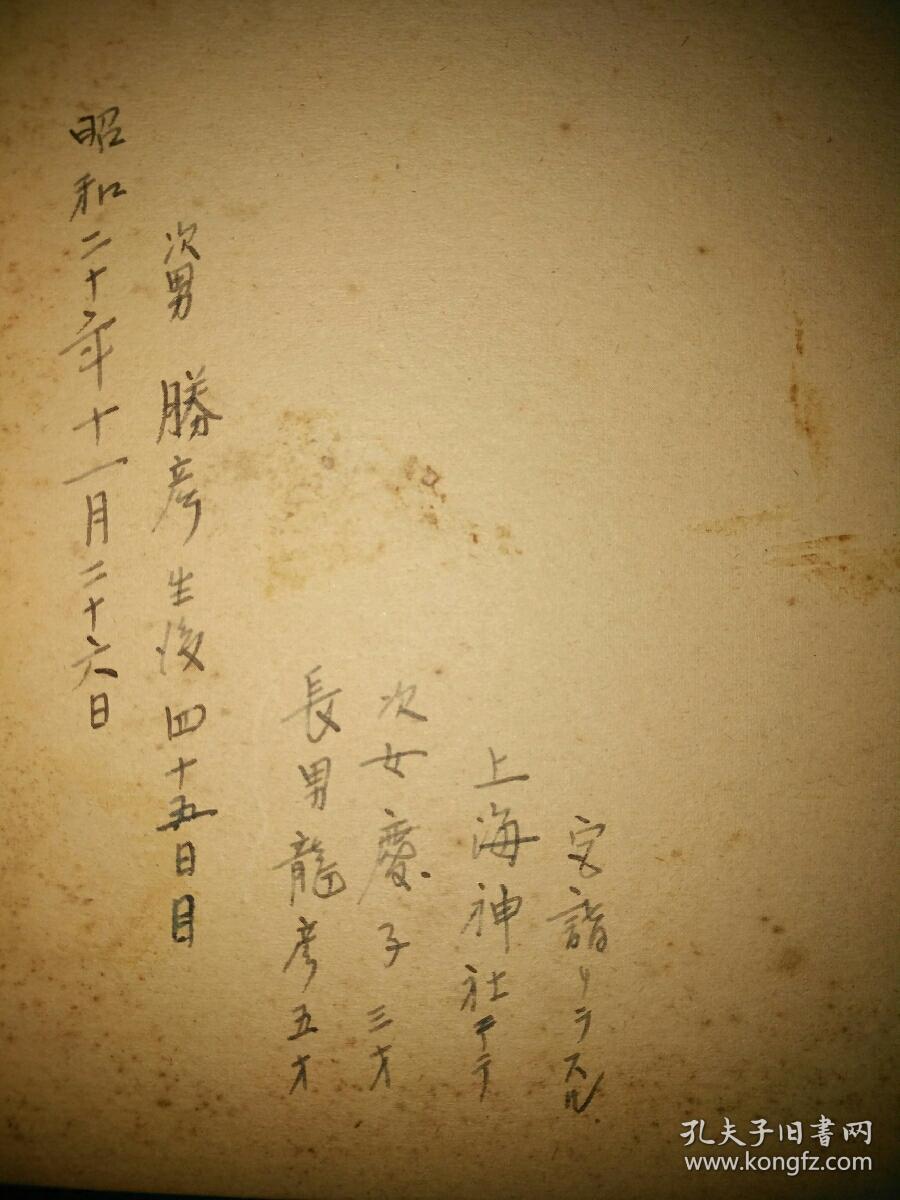 昭和二十年十一月二十六日
次男 勝彦生後四十五日目
長男龍彦五才
次女慶子三才
上海神社ニテ
宮詣リヲスル
孔夫子旧書网
www.kongfz.com